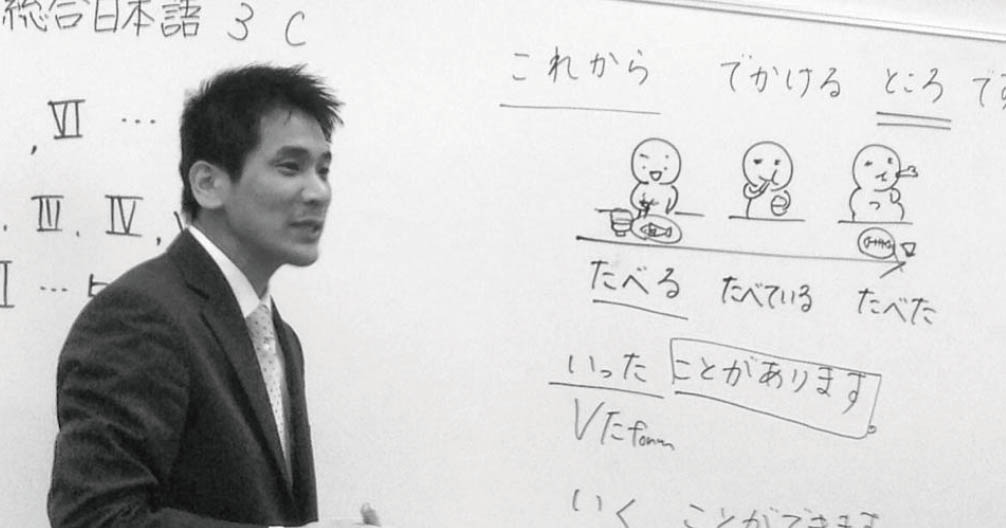 総合日本語 3 C
, VI …
. III. IV,
I …
これから でかける ところ です
たべる たべている たべた
いった ことがあります。
Vた form
いく ことができます